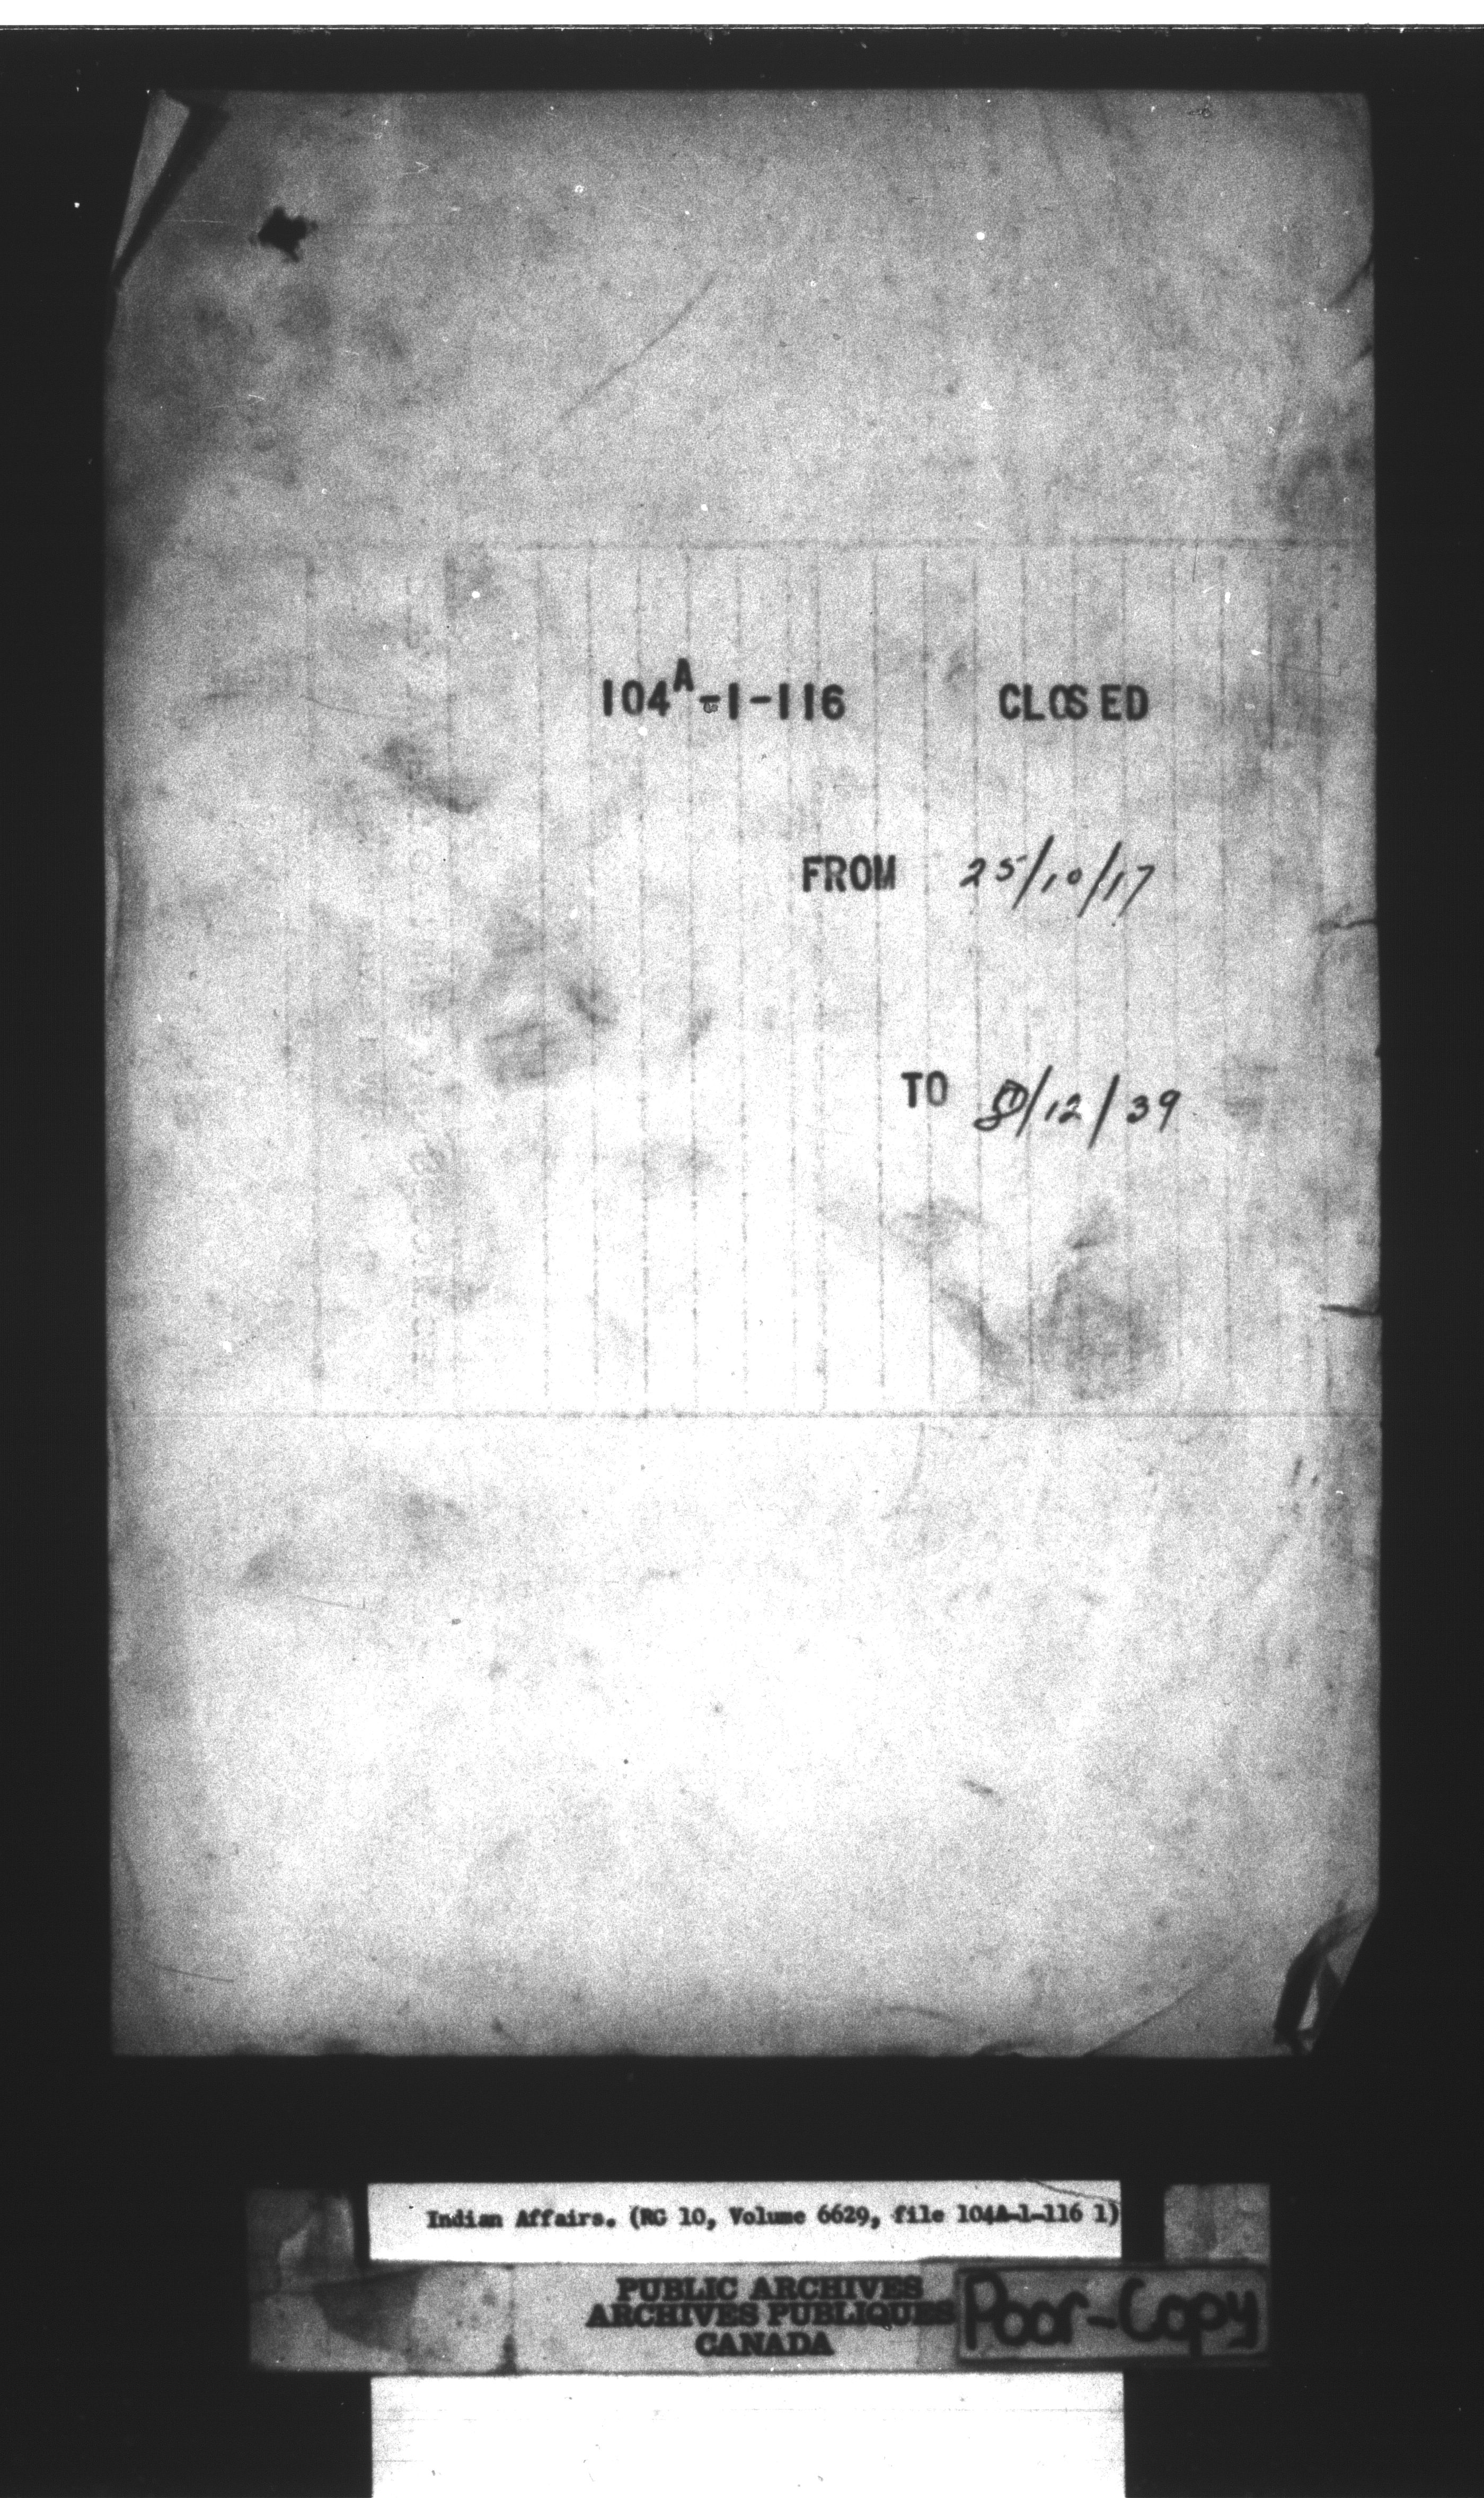 104A-1-116 CLOSED
FROM 25/10/17
TO /12/39
Indian Affairs. (RG 10, Volume 6629, file 104A-1-116 1)
PUBLIC ARCHIVES
ARCHIVES PUBLIQUES
CANADA
Poor-Copy